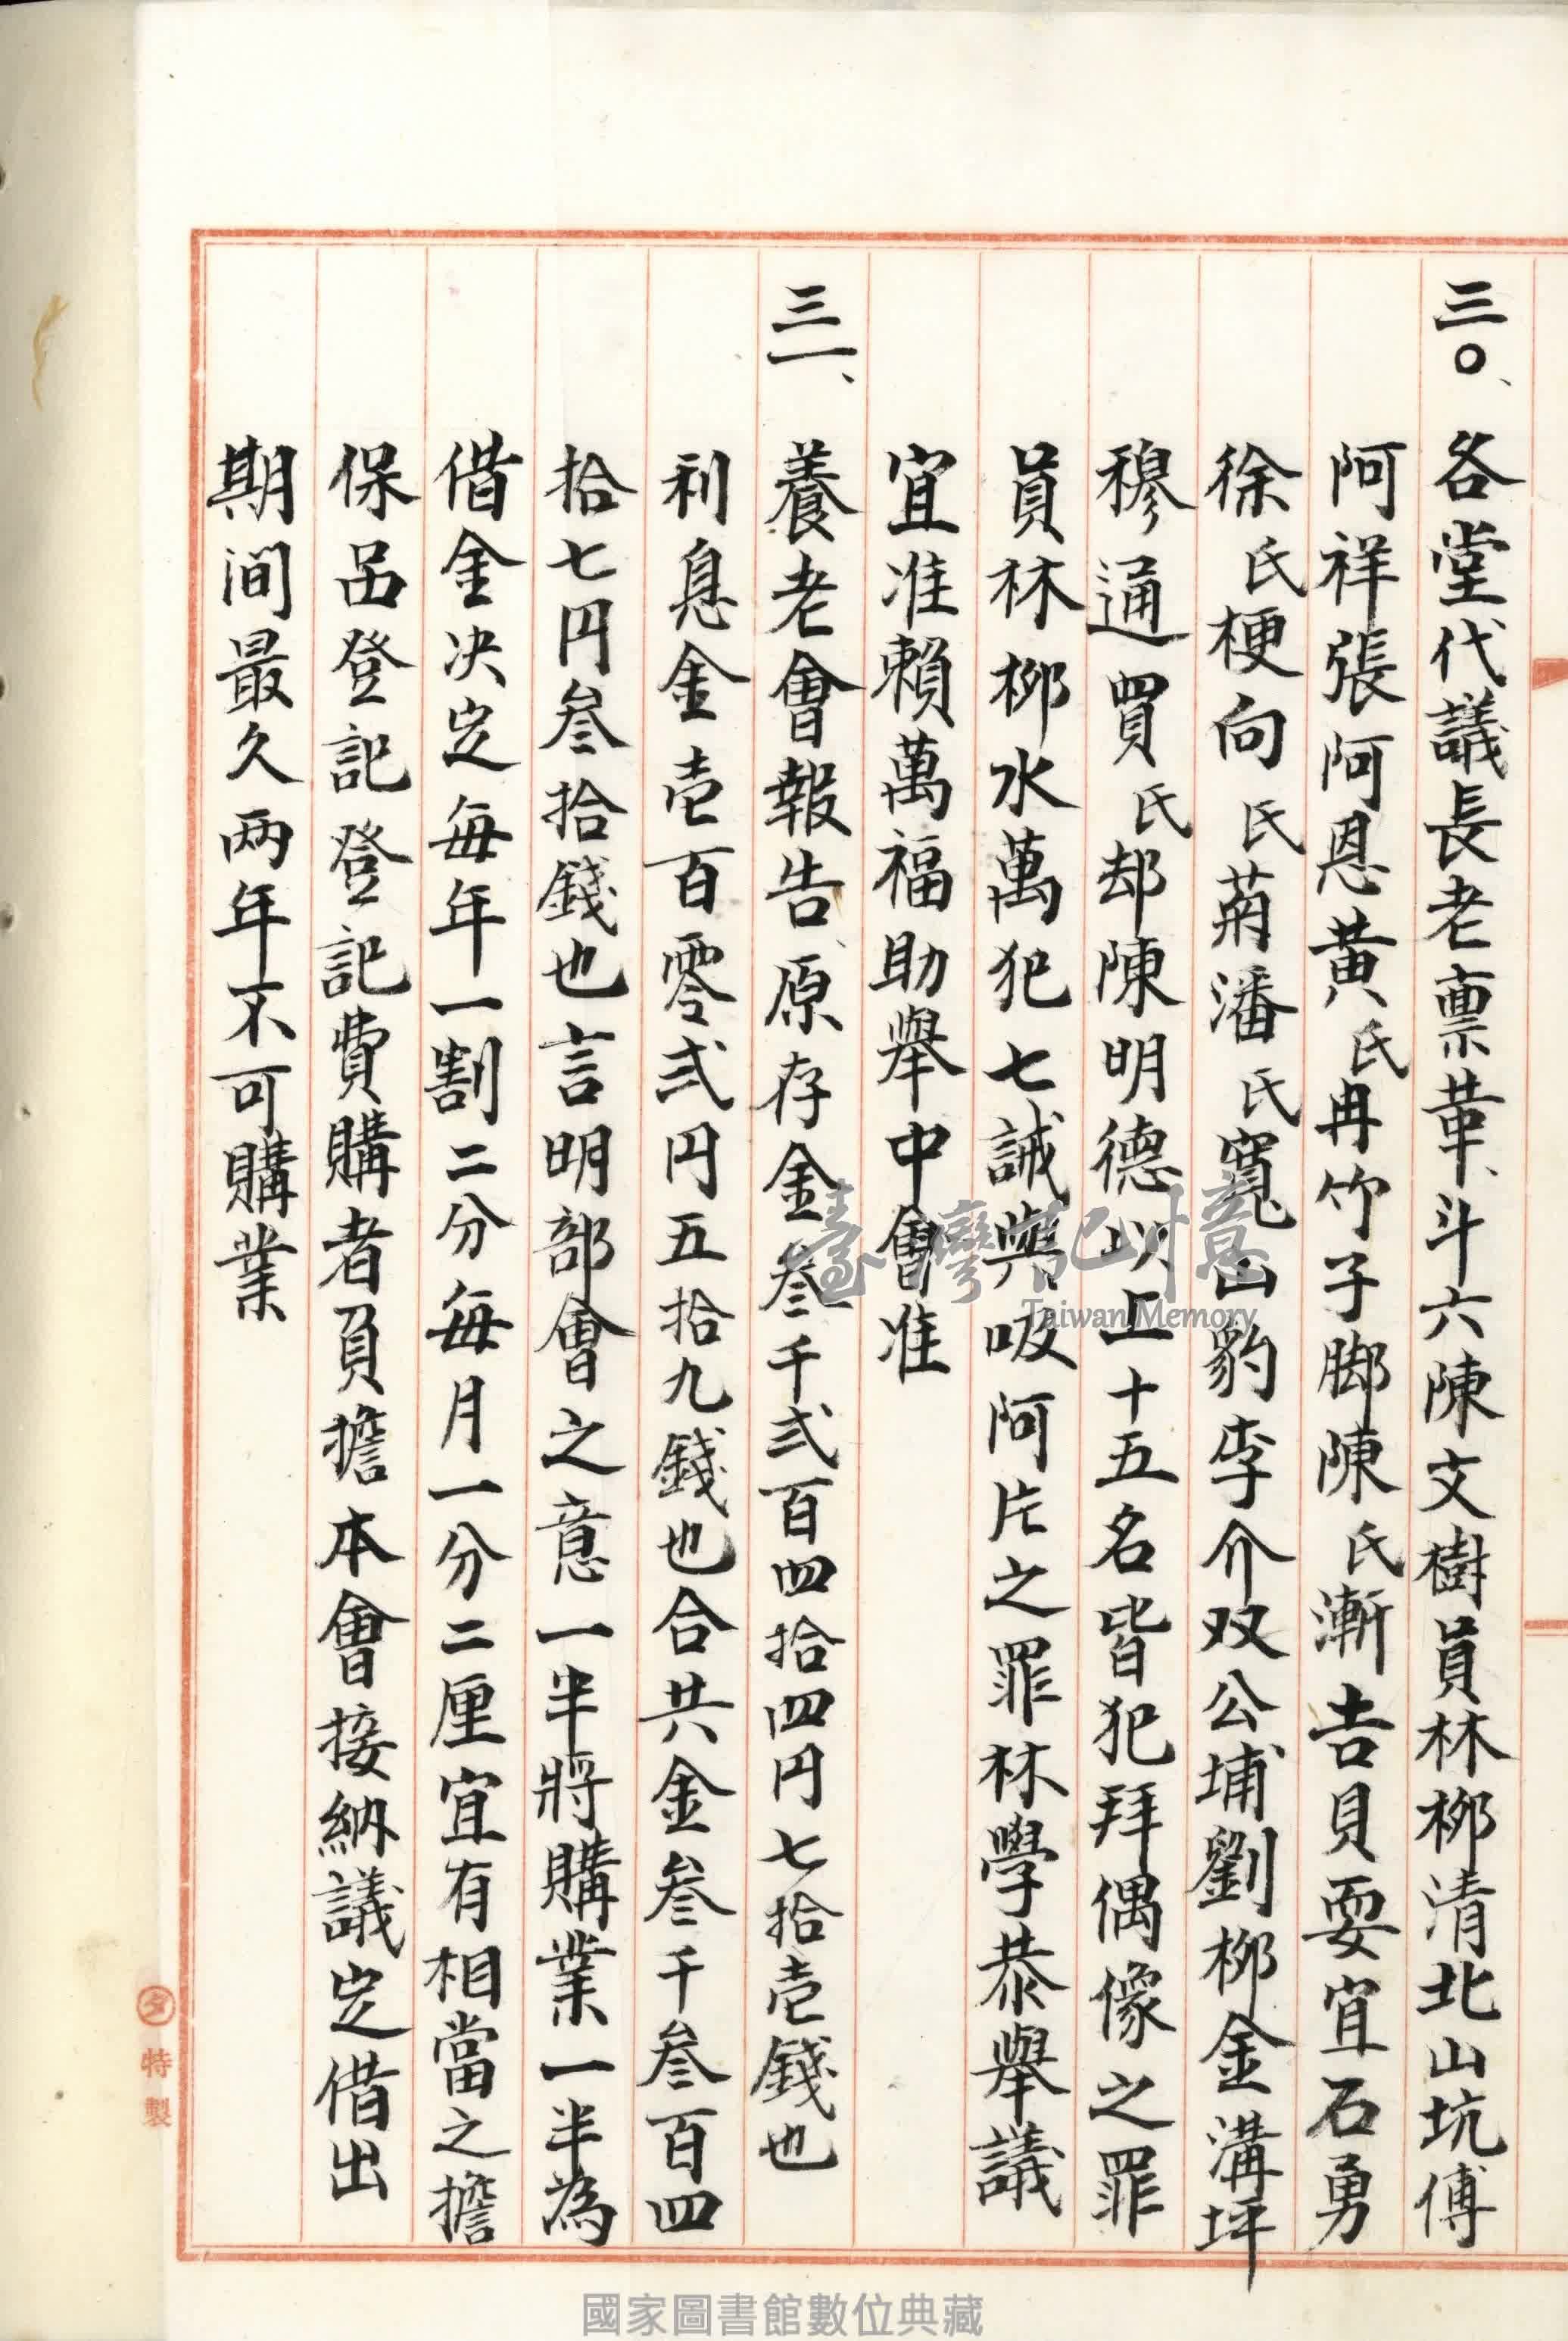 三〇、各堂代議長老禀革、斗六陳文樹員林栁清北山坑傅
阿祥張阿恩黄氏冉竹子脚陳氏漸吉貝耍宜石勇
徐氏梗向氏菊潘氏寬山豹李介双公埔劉栁金溝坪
穆通買氏却陳明德以上十五名皆犯拜偶像之罪
員林栁水萬犯七誡與吸阿片之罪林學恭舉議
宜准賴萬福助舉中會准
三一、養老會報告、原存金叁千弍百四拾四円七拾壱錢也
利息金壱百零弍円五拾九錢也合共金叁千叁百四
拾七円叁拾錢也言明部會之意一半將購業一半為
借金决定每年一割二分每月一分二厘宜有相當之擔
保品登記登記費購者負擔本會接納議定借出
期间最久两年不可購業
特製
臺灣記憶
Taiwan Memory
國家圖書館數位典藏